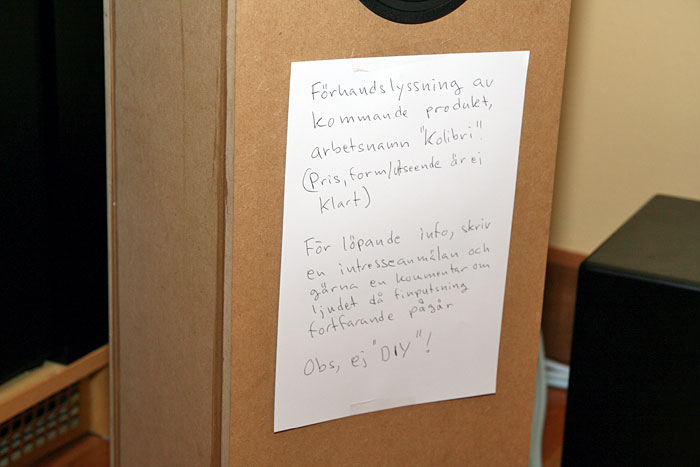 Förhandslyssning av
kommande produkt,
arbetsnamn "Kolibri".
(Pris, form/utseende är ej
klart)
För löpande info, skriv
en intresseanmälan och
gärna en kommentar om
ljudet då finputsning
fortfarande pågår
Obs, ej "DIY"!